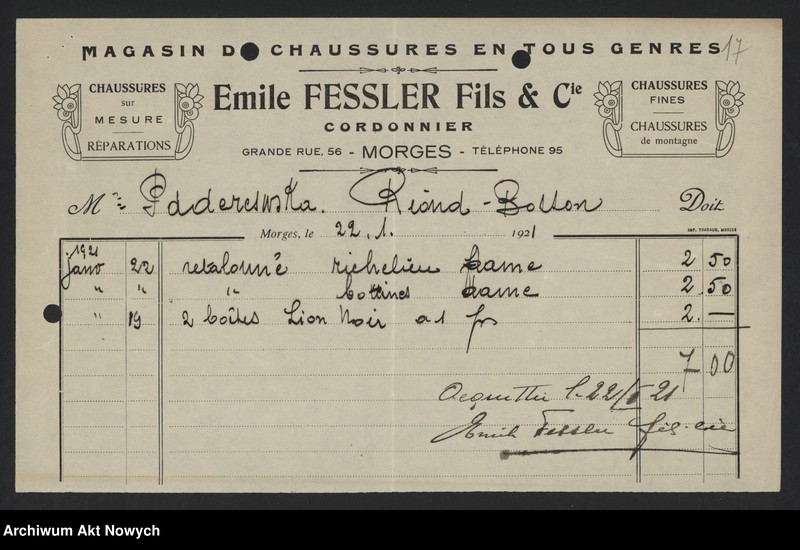 17
MAGASIN DE CHAUSSURES EN TOUS GENRES
CHAUSSURES
sur
MESURE
RÉPARATIONS
Emile FESSLER Fils & Cie
CORDONNIER
GRANDE RUE, 56 - MORGES - TÉLÉPHONE 95
CHAUSSURES
FINES
CHAUSSURES
de montagne
Mme Paderewska. Riond-Bosson Doit
Morges, le 22.1. 1921
IMP. TRABAUD, MORGES
1921
janv 22 retalonné richelieu dame 2 50
" " " bottines dame 2.50
" 19 2 boîtes Lion Noir a 1 frs 2. —
7 00
Acquitté l. 22/I 21
Emile Fessler fils & cie
Archiwum Akt Nowych